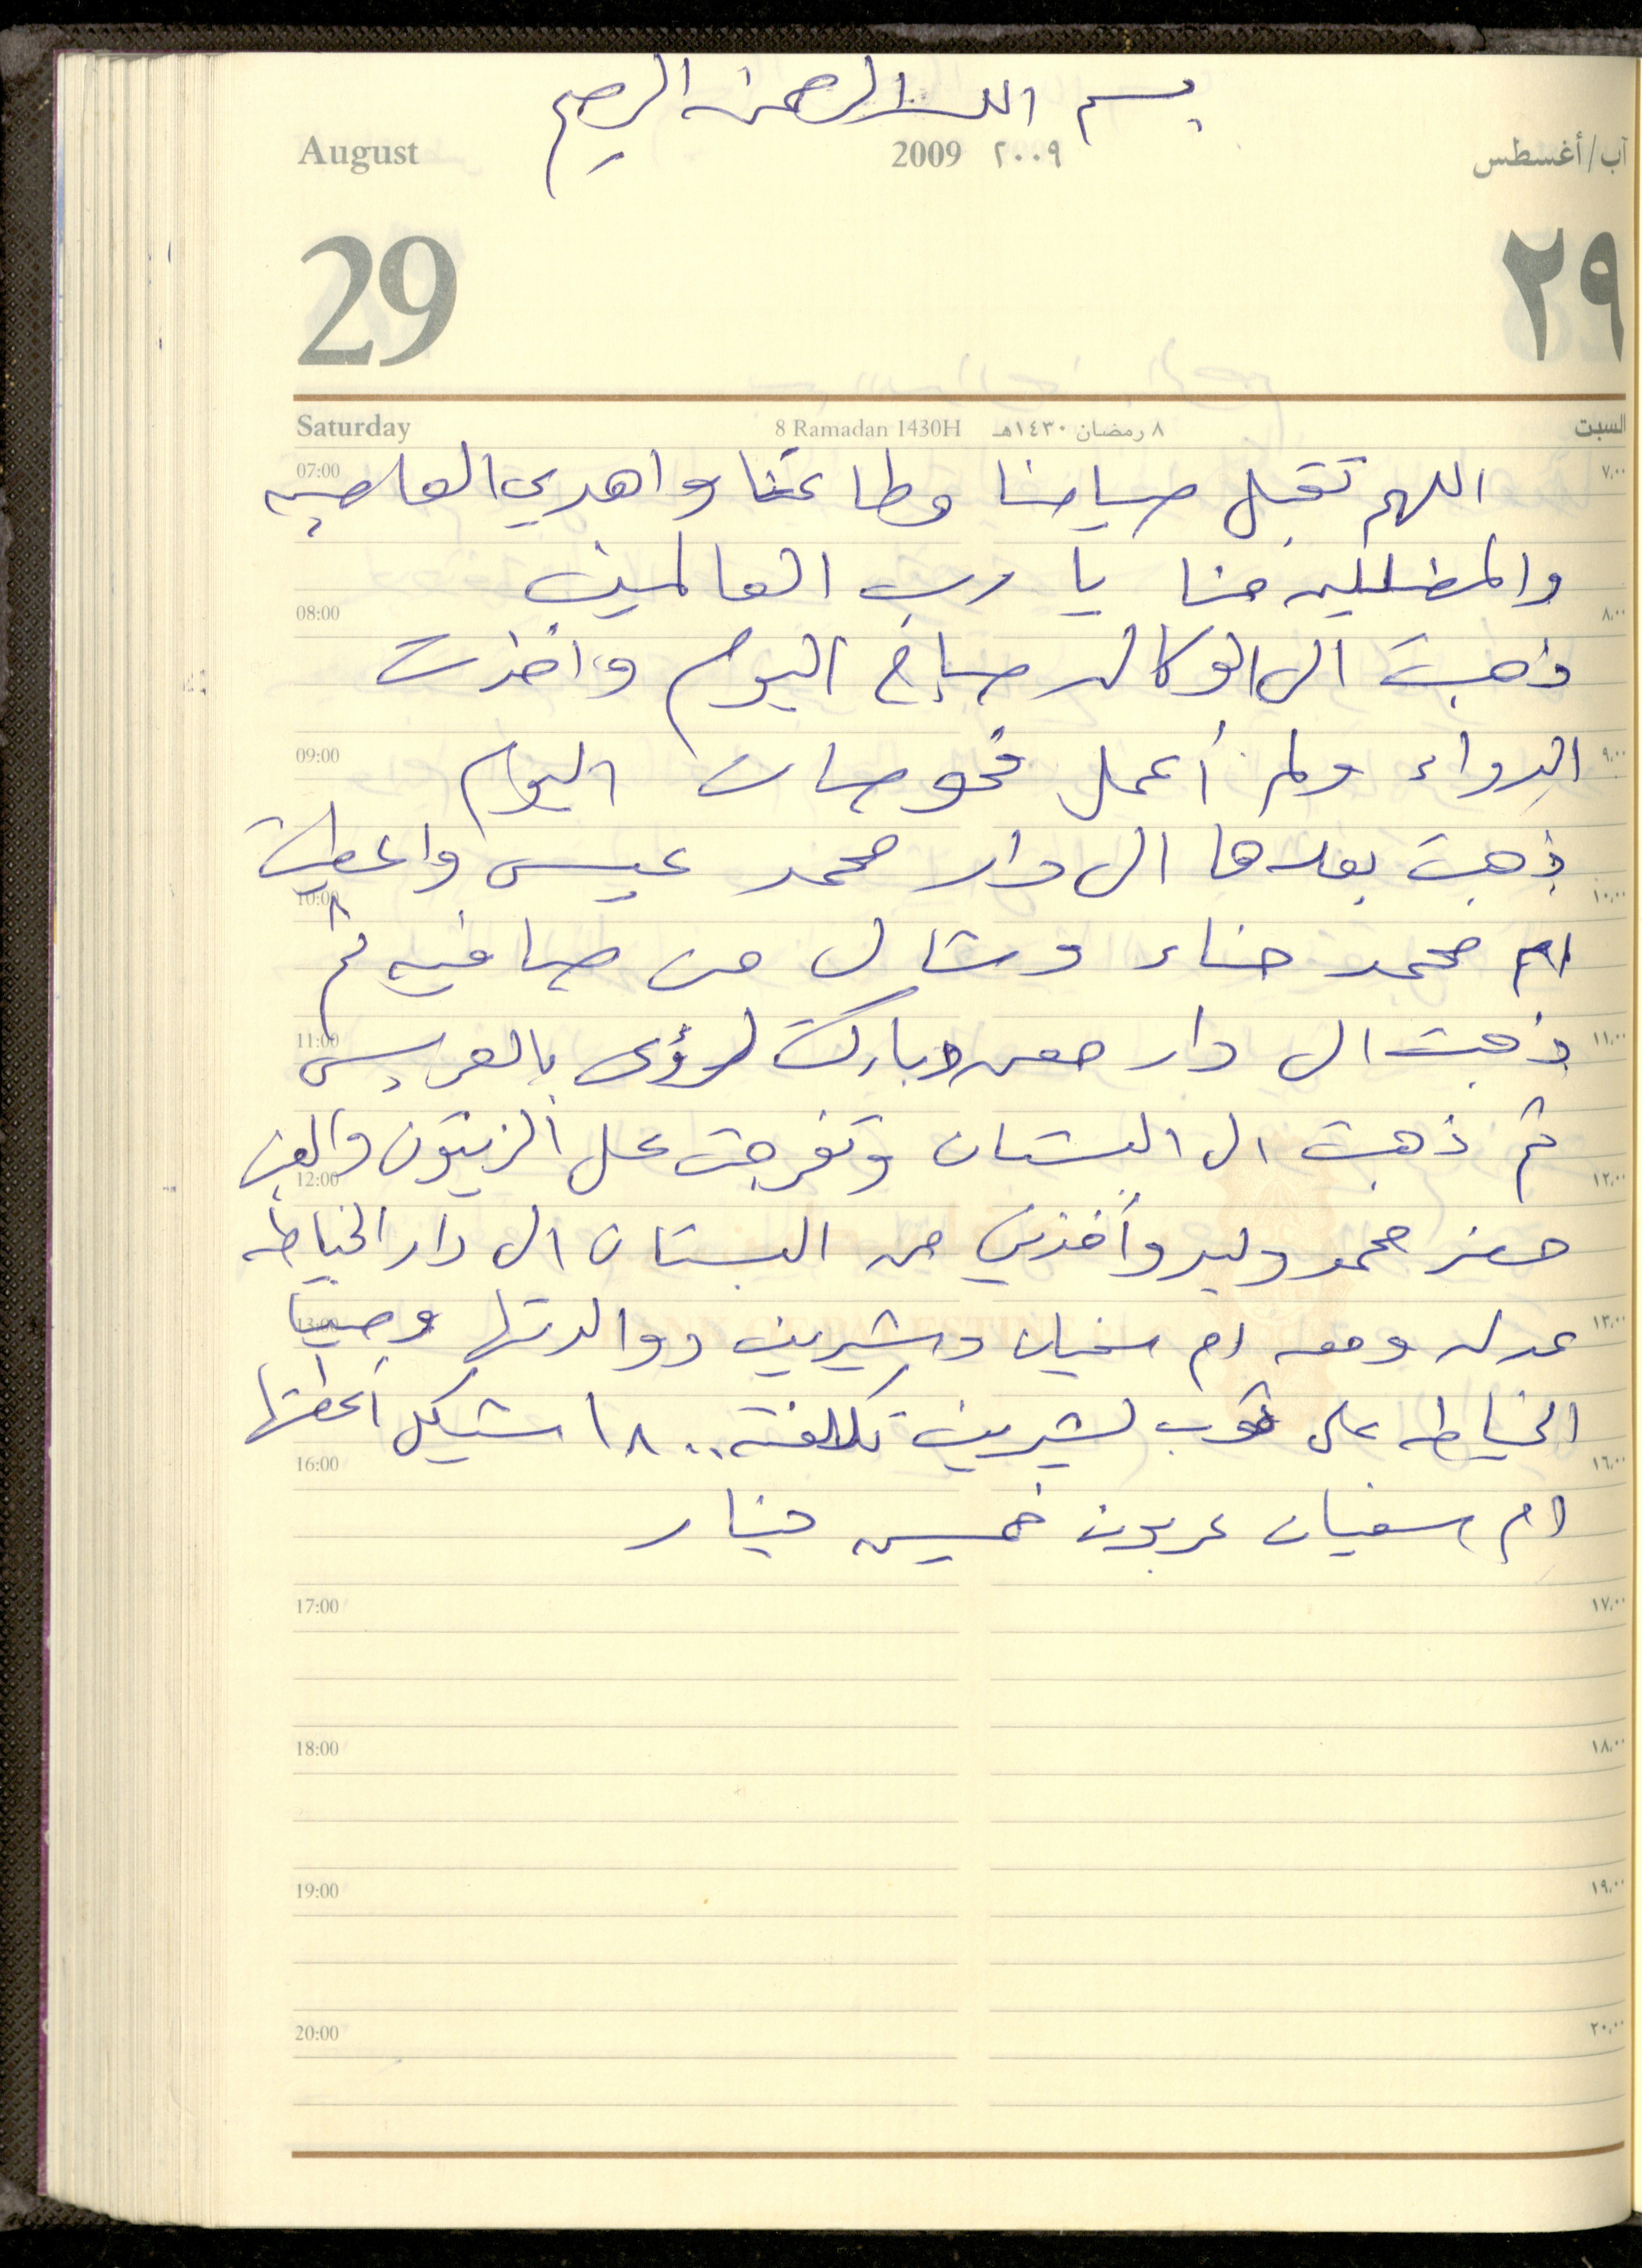 بسم الله الرحمن الرحيم
August 2009 ٢٠٠٩ آب/أغسطس
29 ٢٩
Saturday 8 Ramadan 1430H ٨ رمضان ١٤٣٠هـ السبت
07:00 اللهم تقبل صيامنا وطاعتنا واهدي العاصيه ٧,٠٠
والمضلليه منا يا رب العالمين
08:00 ٨,٠٠
ذهبت الى الوكاله صباح اليوم واخذت
09:00 الدواء ولم أعمل فحوصات اليوم ٩,٠٠
ذهبت بعدها الى دار محمد عيسى واعطيت
10:00 ١٠,٠٠
ام محمد حناء وشال من صافيه ثم
11:00 ذهبت الى دار معن وباركت لرؤى بالعريس ١١,٠٠
ثم ذهبت الى البستان وتفرجت على الزيتون والعنب
12:00 ١٢,٠٠
حضر محمد وليد وأخذني من البستان الى دار الخياطه
13:00 عدله ومعه ام سفيان وشيرين ووالدتها وصينا ١٣,٠٠
الخياطه على ثوب لشيرين تكلفته ١٨٠٠ شيكل أعطتها
16:00 ١٦,٠٠
ام سفيان عربون خمسين دينار
17:00 ١٧,٠٠
18:00 ١٨,٠٠
19:00 ١٩,٠٠
20:00 ٢٠,٠٠